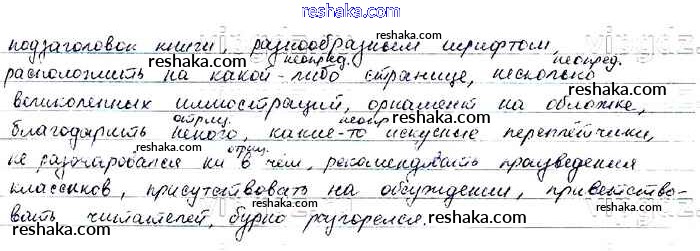 reshaka.com
подзаголовок книги, разнообразным шрифтом,
reshaka.com неопред. reshaka.com неопред.
расположить на какой-либо странице, несколько
reshaka.com reshaka.com
великолепных иллюстраций, орнамент на обложке,
отриц. неопр reshaka.com
благодарить некого, какие-то искусные переплётчики,
reshaka.com отриц. reshaka.com
не разочаровался ни в чём, рекомендовать произведения
классиков, присутствовать на обсуждении, приветство-
reshaka.com reshaka.com
вать читателей, бурно разгорелся.
reshaka.com